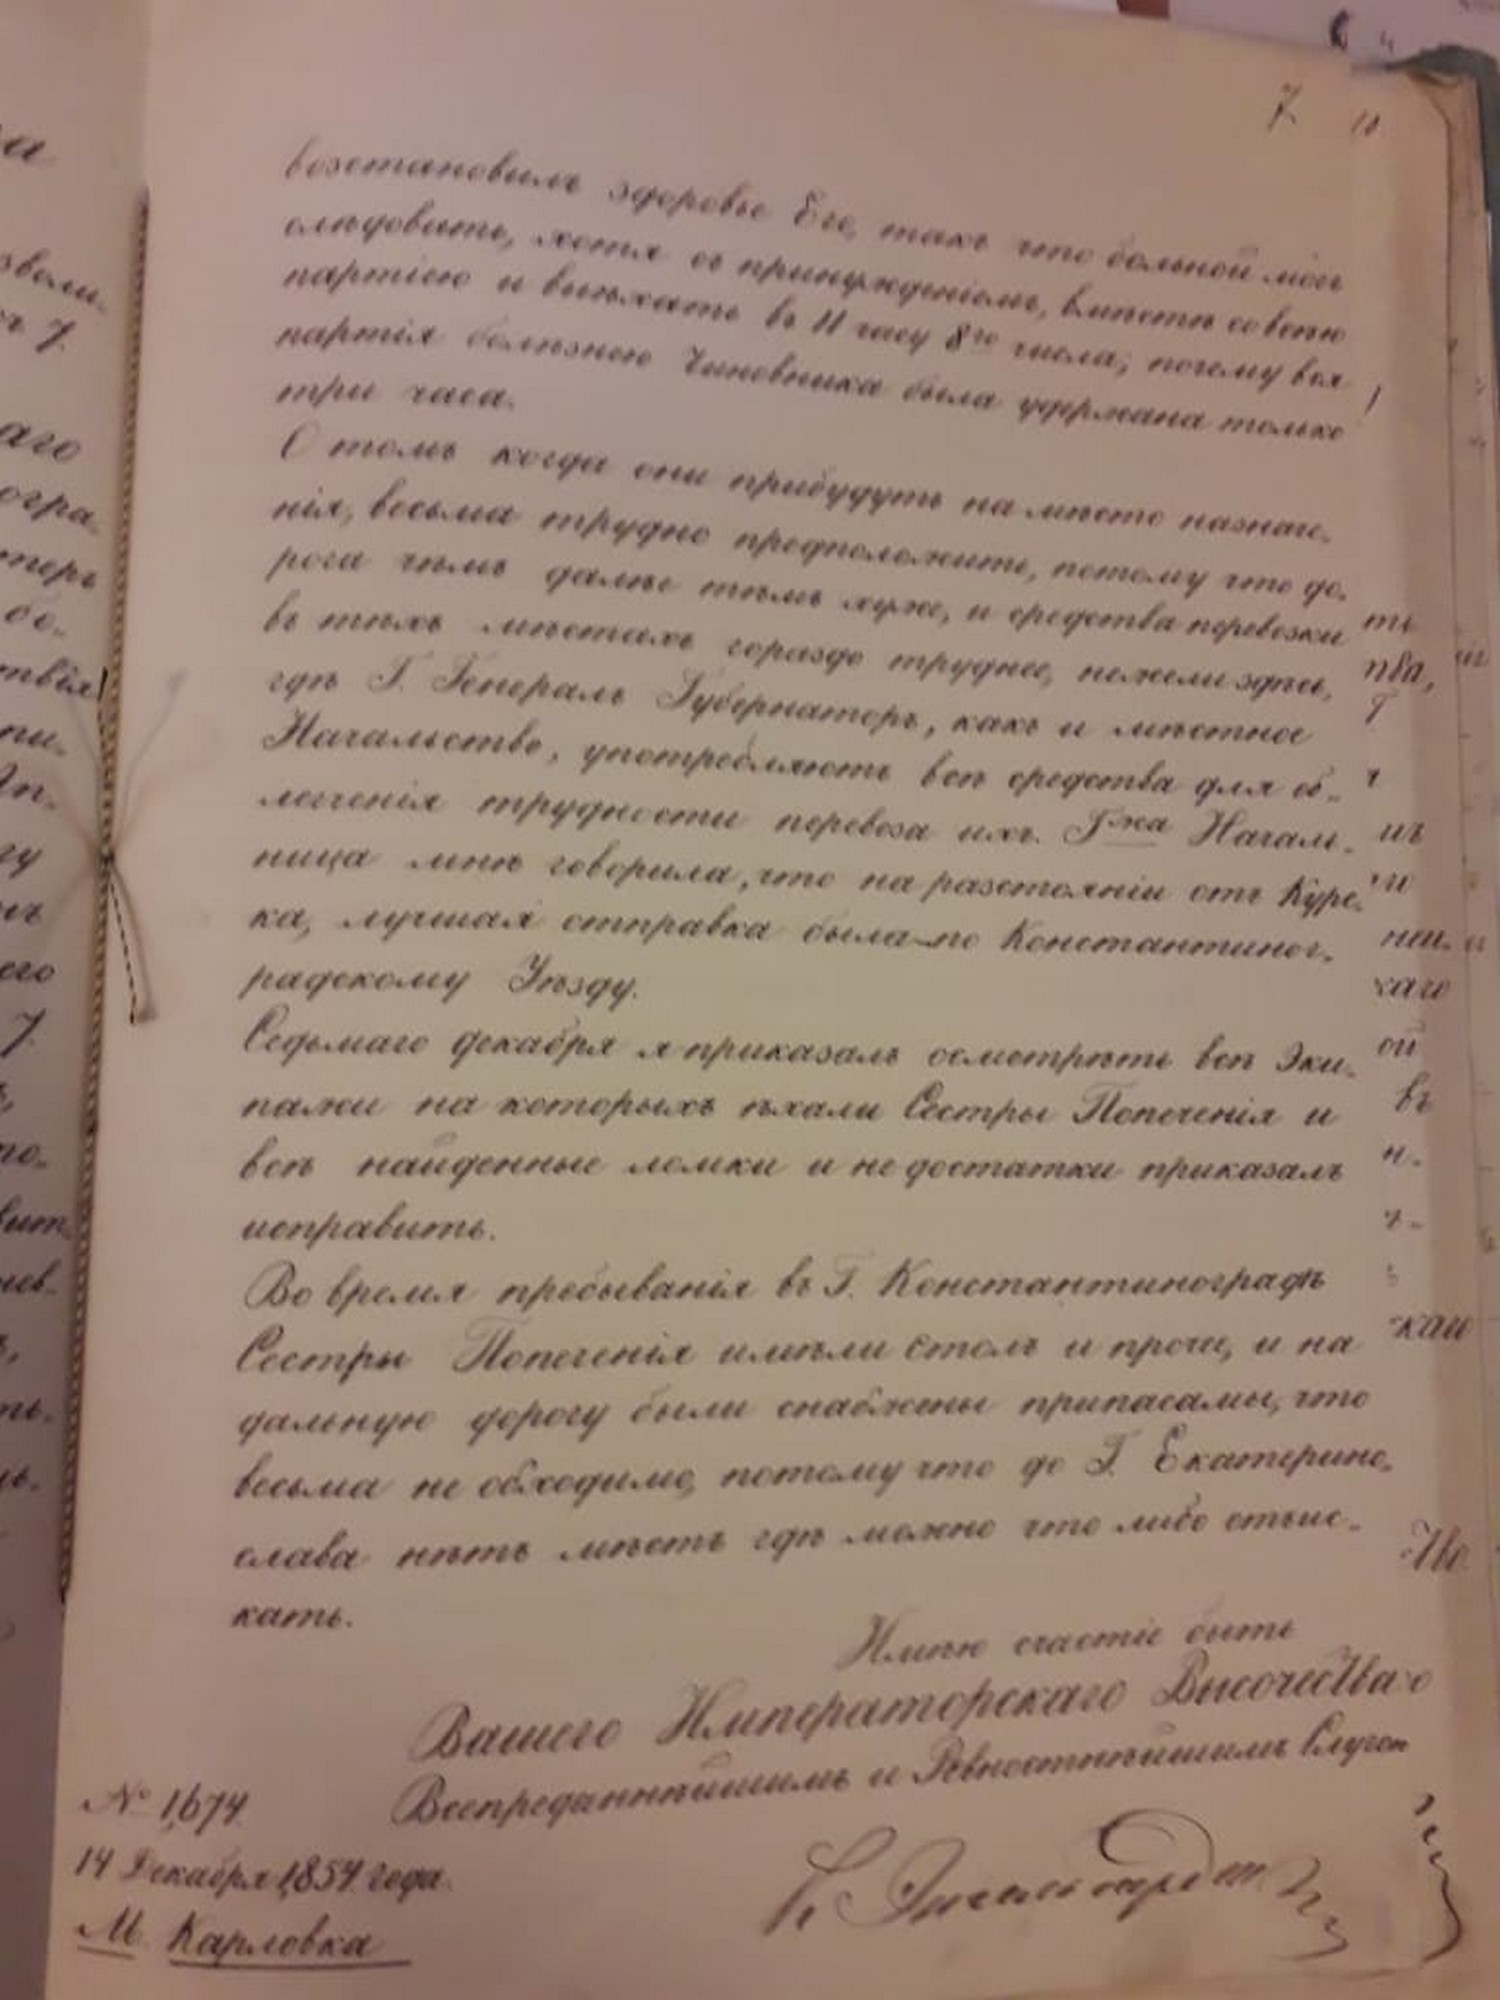 7 10
возстановилъ здоровье Его, такъ что больной могъ
слѣдовать, хотя съ принужденіемъ, вмѣстѣ со всею
партіею и выѣхать въ 11 часу 8го числа; почему вся
партія болѣзнею Чиновника была удержана только
три часа.
О томъ когда они прибудутъ на мѣсто назначе-
нія, весьма трудно предположить, потому что до-
рога чѣмъ далѣе тѣмъ хуже, и средства перевозки
въ тѣхъ мѣстахъ гораздо труднее, нежели здѣсь,
гдѣ Г. Генералъ Губернаторъ, какъ и мѣстное
Начальство, употребляютъ всѣ средства для об-
легченія трудности перевоза ихъ. Гжа Началь-
ница мнѣ говорила, что на разстояніи отъ Курс-
ка, лучшая отправка была по Константиног-
радскому Уѣзду.
Седьмаго декабря я приказалъ осмотрѣть всѣ Эки-
пажи на которыхъ ѣхали Сестры Попеченія и
всѣ найденные ломки и не достатки приказалъ
исправить.
Во время пребыванія въ Г. Константиноградѣ
Сестры Попеченія имѣли столъ и проче, и на
дальную дорогу были снабжены припасами, что
весьма не обходимо, потому что до Г. Екатерино-
слава нѣтъ мѣстъ гдѣ можно что либо отыс-
кать.
Имѣю счастіе быть
Вашего Императорскаго Высочества
Всепреданнѣйшимъ и Ревностнѣйшимъ Слугою
№ 1,674.
14 Декабря 1,854 года.
М. Карловка